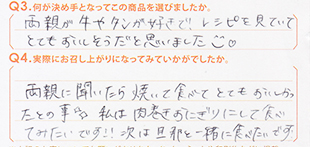 Q3.何が決め手となってこの商品を選びましたか。
両親が牛やタンが好きで！レシピを見ていて
とてもおいしそうだと思いました☺♡
Q4.実際にお召し上がりになってみていかがでしたか。
両親に聞いたら焼いて食べてとてもおいしかっ
たとの事♪私は肉巻きおにぎりにして食べ
てみたいです!!次は旦那と一緒に食べたいです